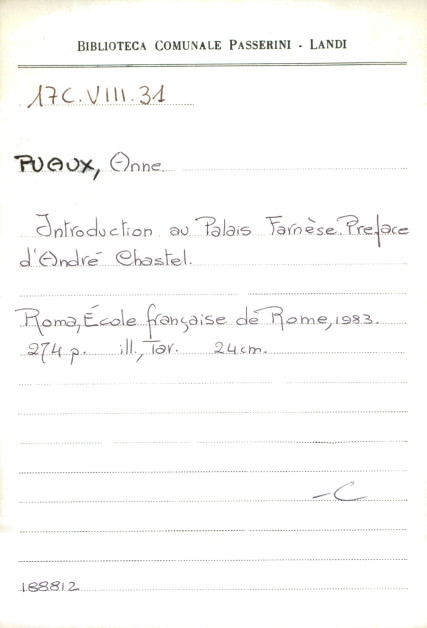 BIBLIOTECA COMUNALE PASSERINI - LANDI
17C.VIII.31
PUAUX, Anne
Introduction au Palais Farnèse. Preface
d'André Chastel.
Roma, École française de Rome, 1983.
274 p. ill., Tav. 24 cm.
-C
188812